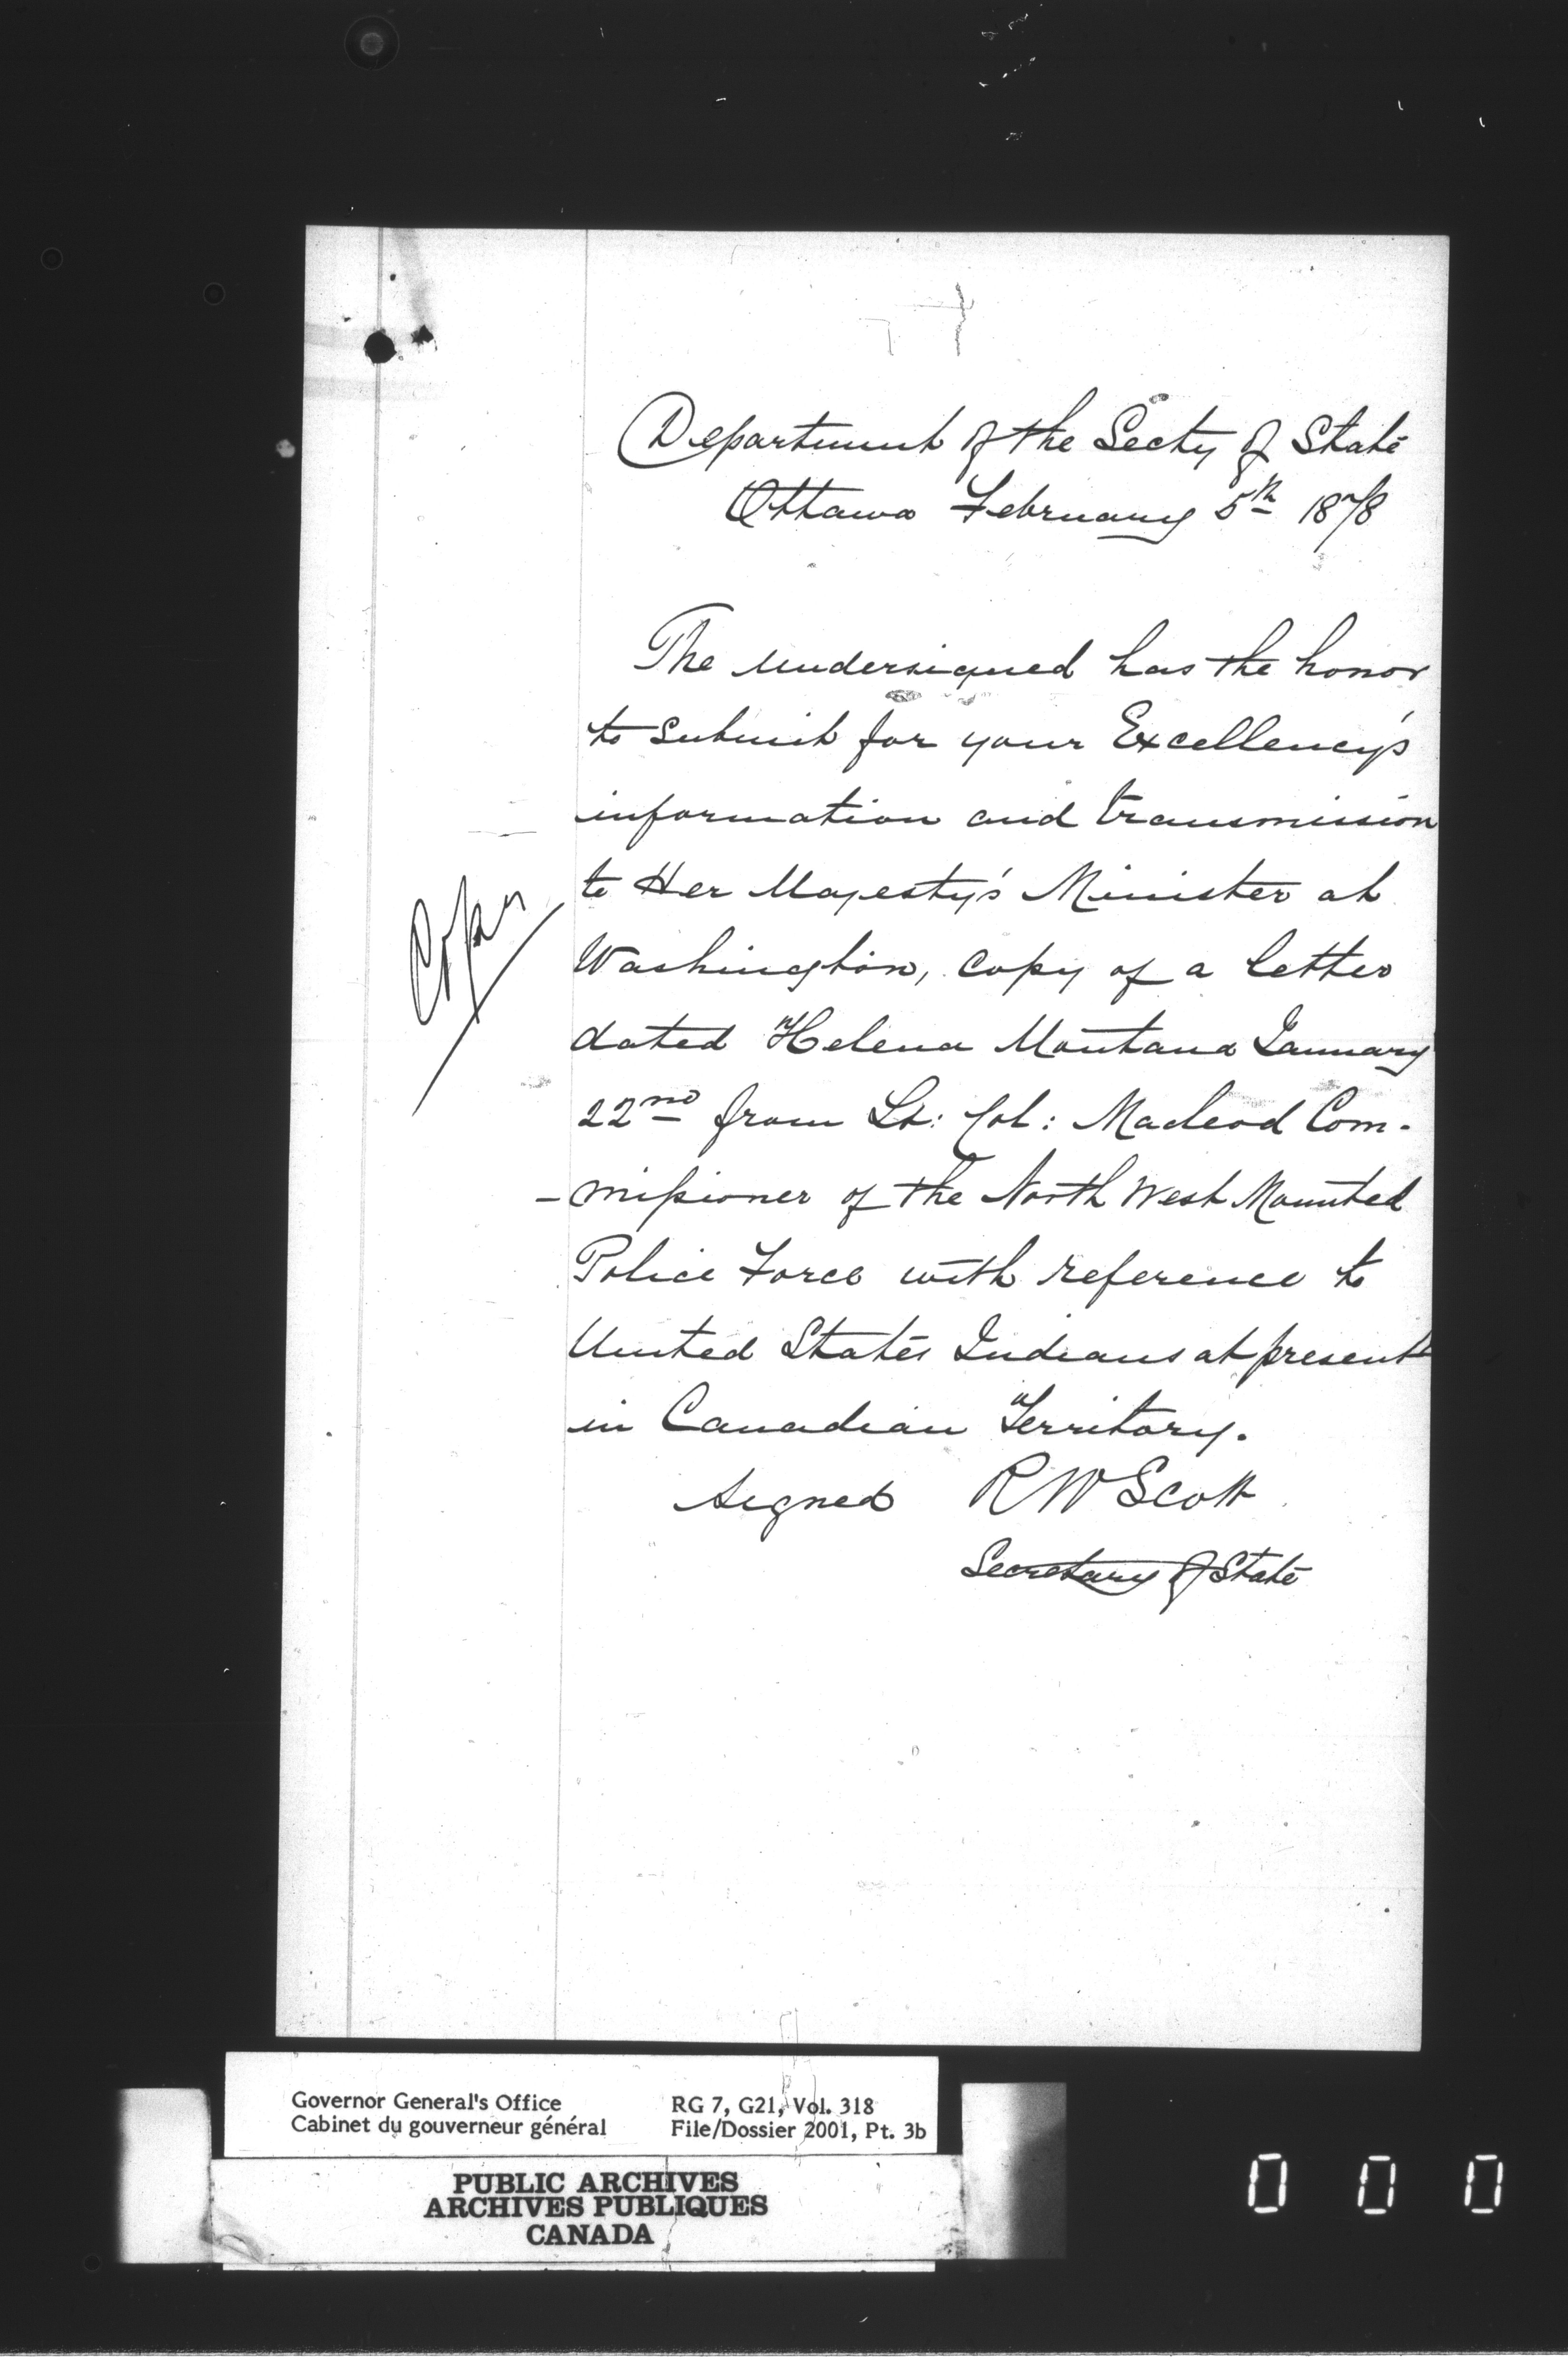 Department of the Secty of State
Ottawa February 5th 1878
The undersigned has the honor
to submit for your Excellency's
information and transmission
to Her Majesty's Minister at
Copy
Washington, copy of a letter
dated Helena Montana January
22nd from Lt: Col: Macleod Com-
-missioner of the North West Mounted
Police Force with reference to
United States Indians at present
in Canadian Territory.
Signed R W Scott
Secretary of State
Governor General's Office RG 7, G21, Vol. 318
Cabinet du gouverneur général File/Dossier 2001, Pt. 3b
PUBLIC ARCHIVES
ARCHIVES PUBLIQUES
CANADA
0 0 0